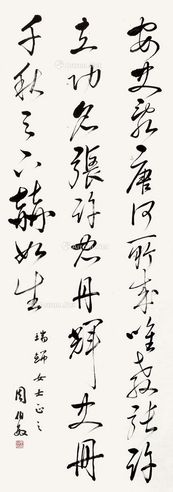 安史亂唐何所成唯教張許
立功名張許忠丹輝史冊
千秋之下赫如生
瑞 女士正之
周伯敏